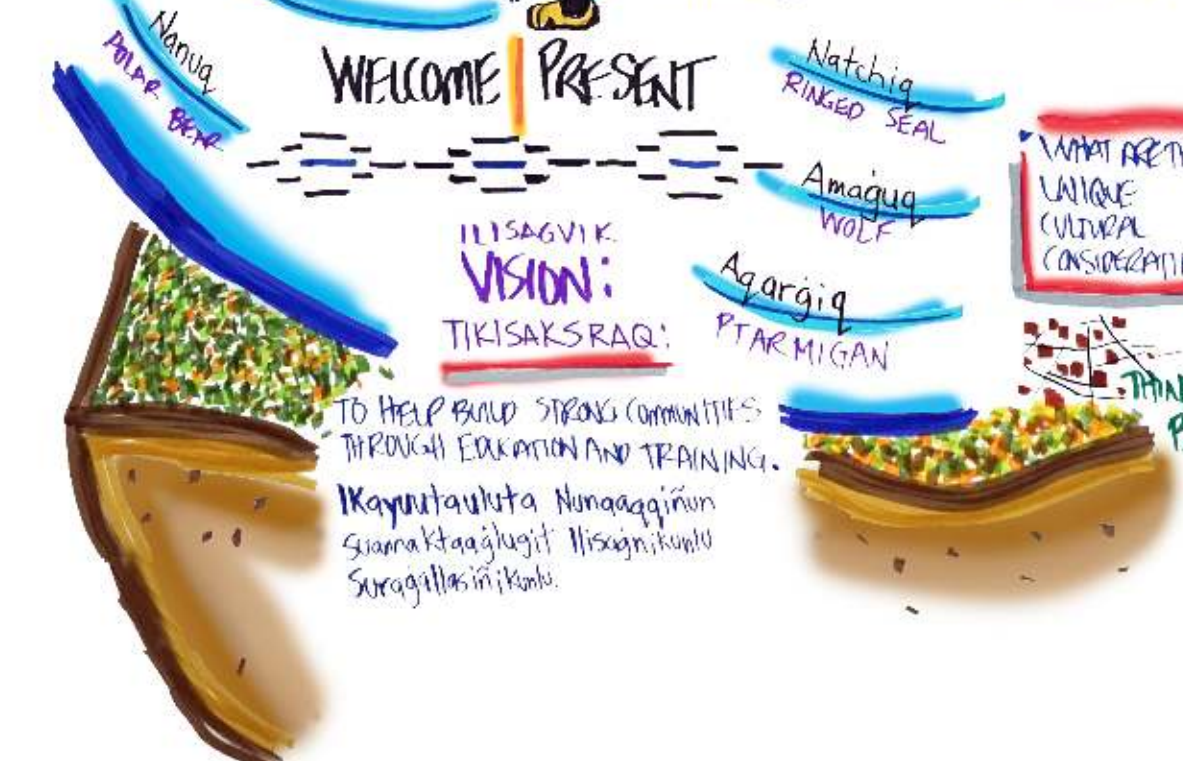 Nanuq
POLAR BEAR
WELCOME PRESENT
Natchiq
RINGED SEAL
Amaġuq
WOLF
Aqargiq
PTARMIGAN
ILISAGVIK
VISION:
TIKISAKSRAQ:
TO HELP BUILD STRONG COMMUNITIES
THROUGH EDUCATION AND TRAINING.
Ikayuutauluta Nunaaqqiñun
Suannaktaaġlugit Ilisaġnikunlu
WHAT ARE
UNIQUE
CULTURAL